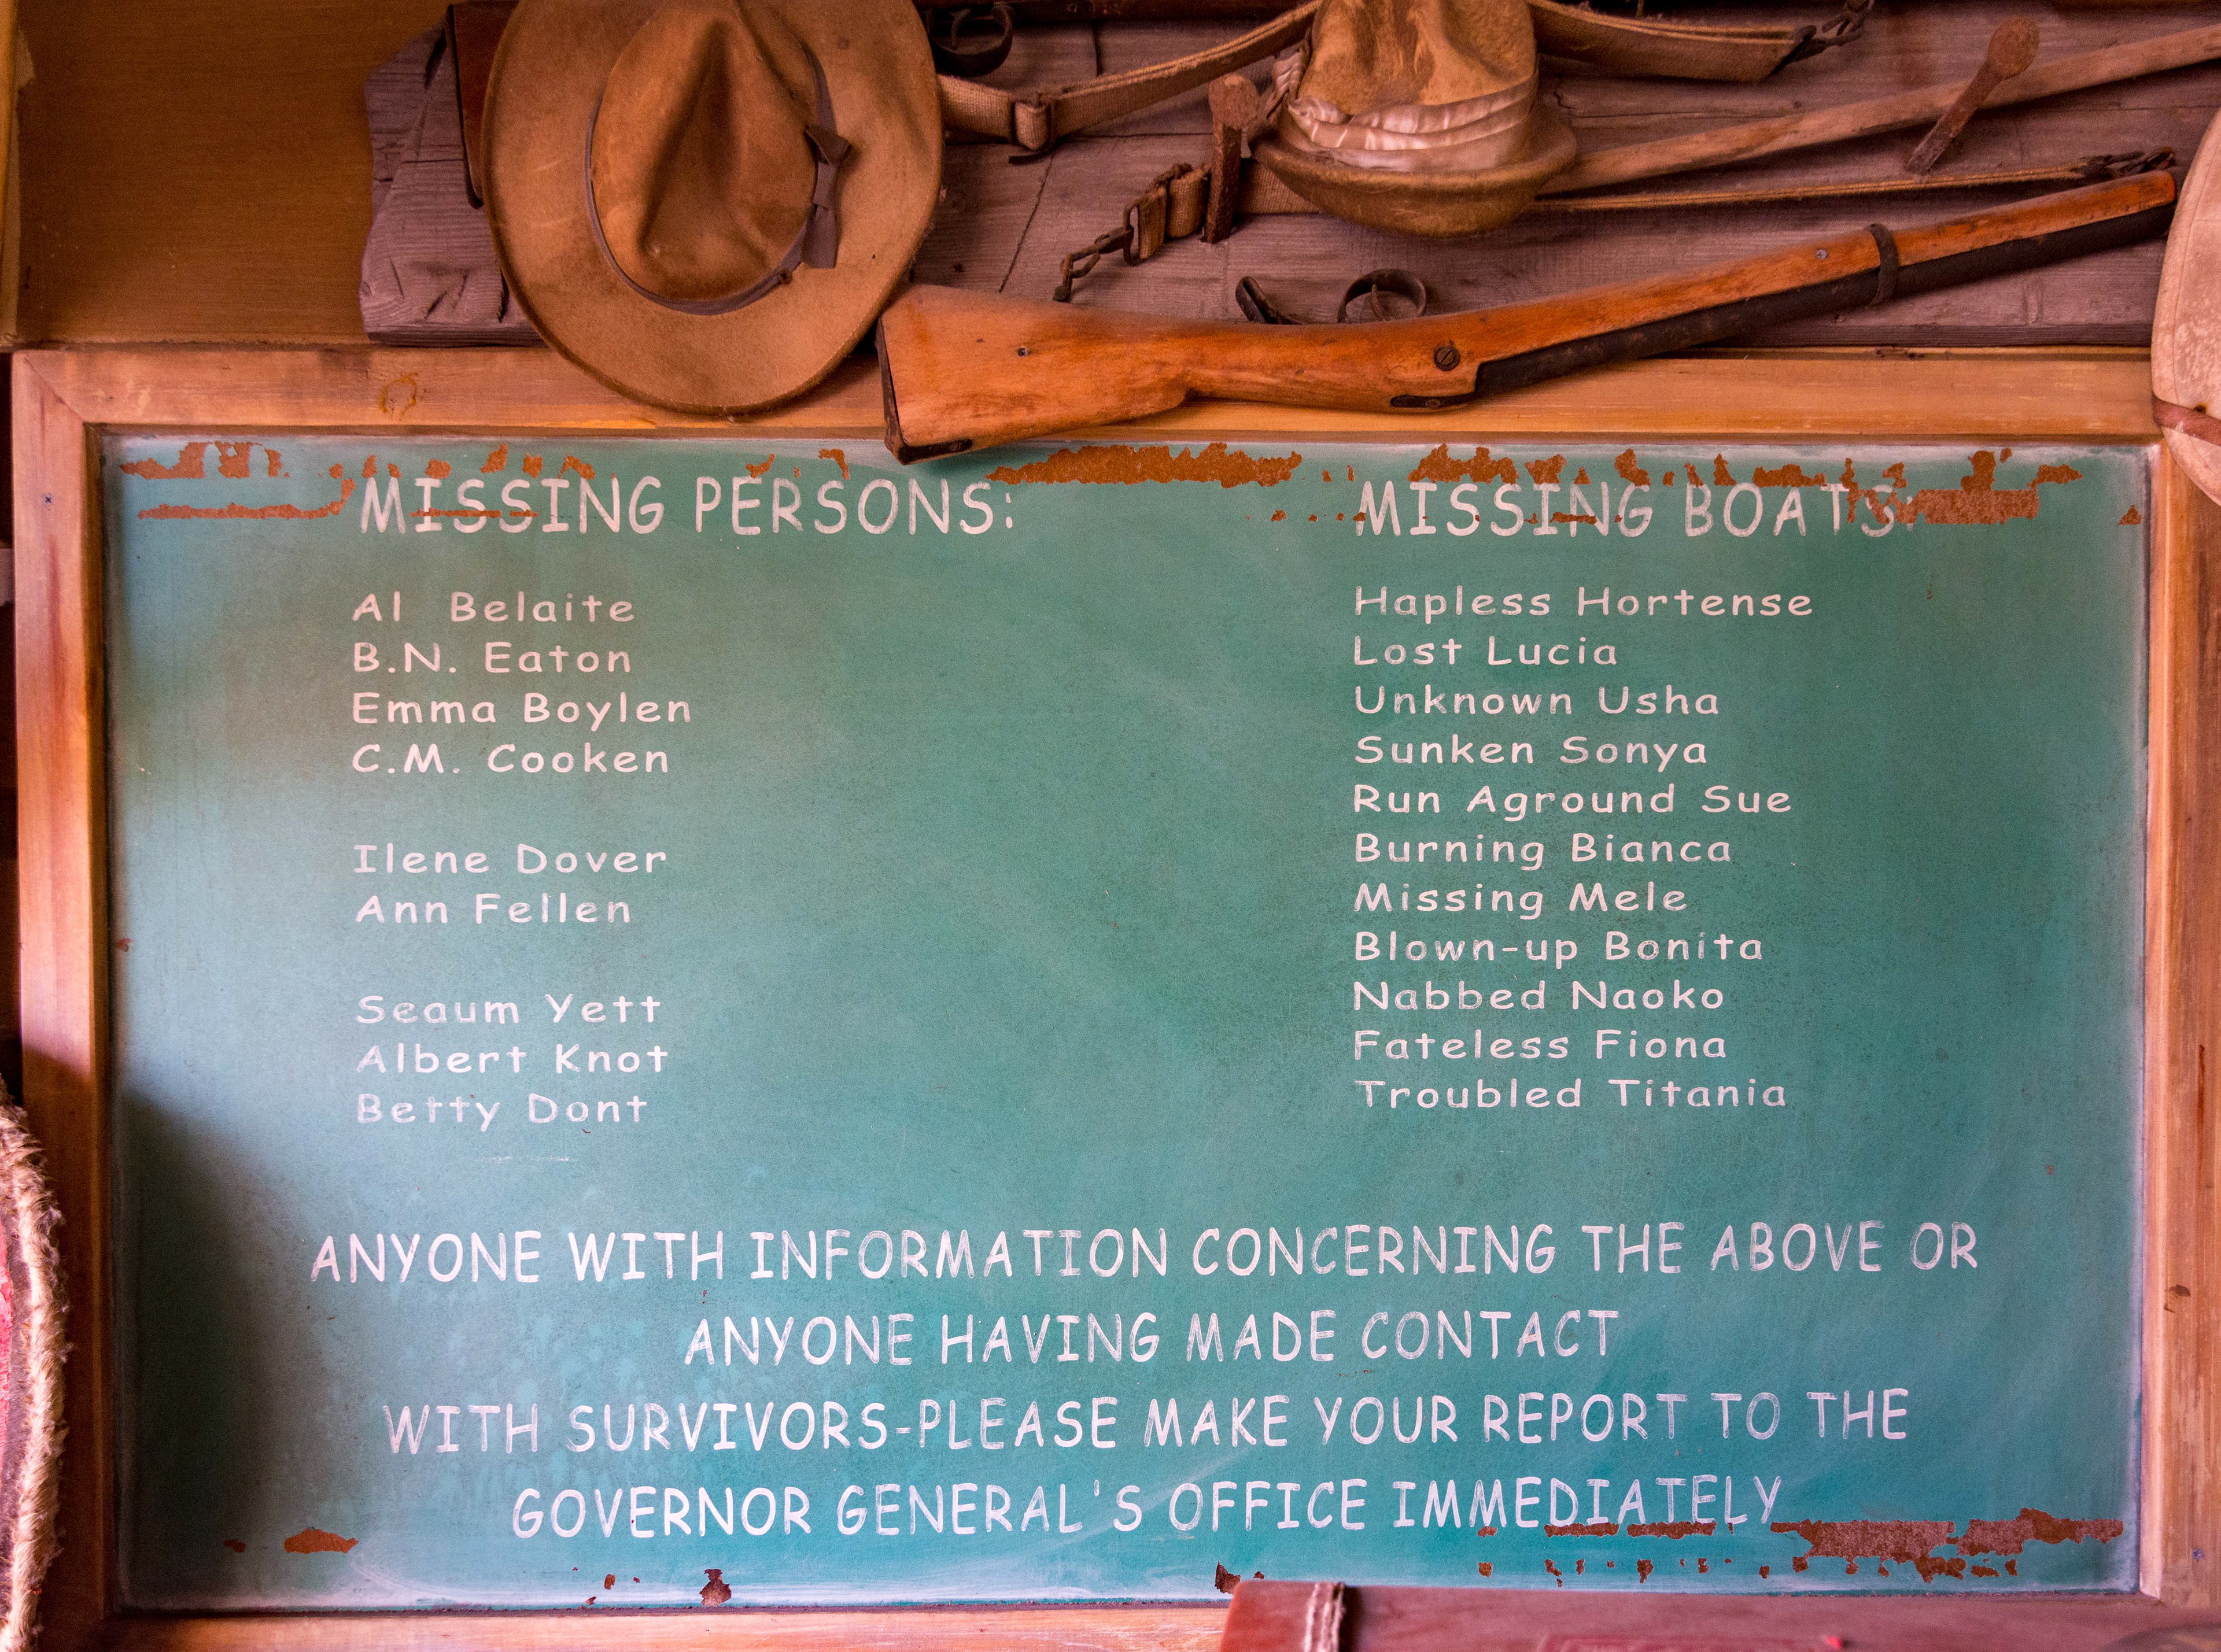 MISSING PERSONS:
Al Belaite
B.N. Eaton
Emma Boylen
C.M. Cooken
Ilene Dover
Ann Fellen
Seaum Yett
Albert Knot
Betty Dont
MISSING BOATS:
Hapless Hortense
Lost Lucia
Unknown Usha
Sunken Sonya
Run Aground Sue
Burning Bianca
Missing Mele
Blown-up Bonita
Nabbed Naoko
Fateless Fiona
Troubled Titania
ANYONE WITH INFORMATION CONCERNING THE ABOVE OR
ANYONE HAVING MADE CONTACT
WITH SURVIVORS-PLEASE MAKE YOUR REPORT TO THE
GOVERNOR GENERAL'S OFFICE IMMEDIATELY